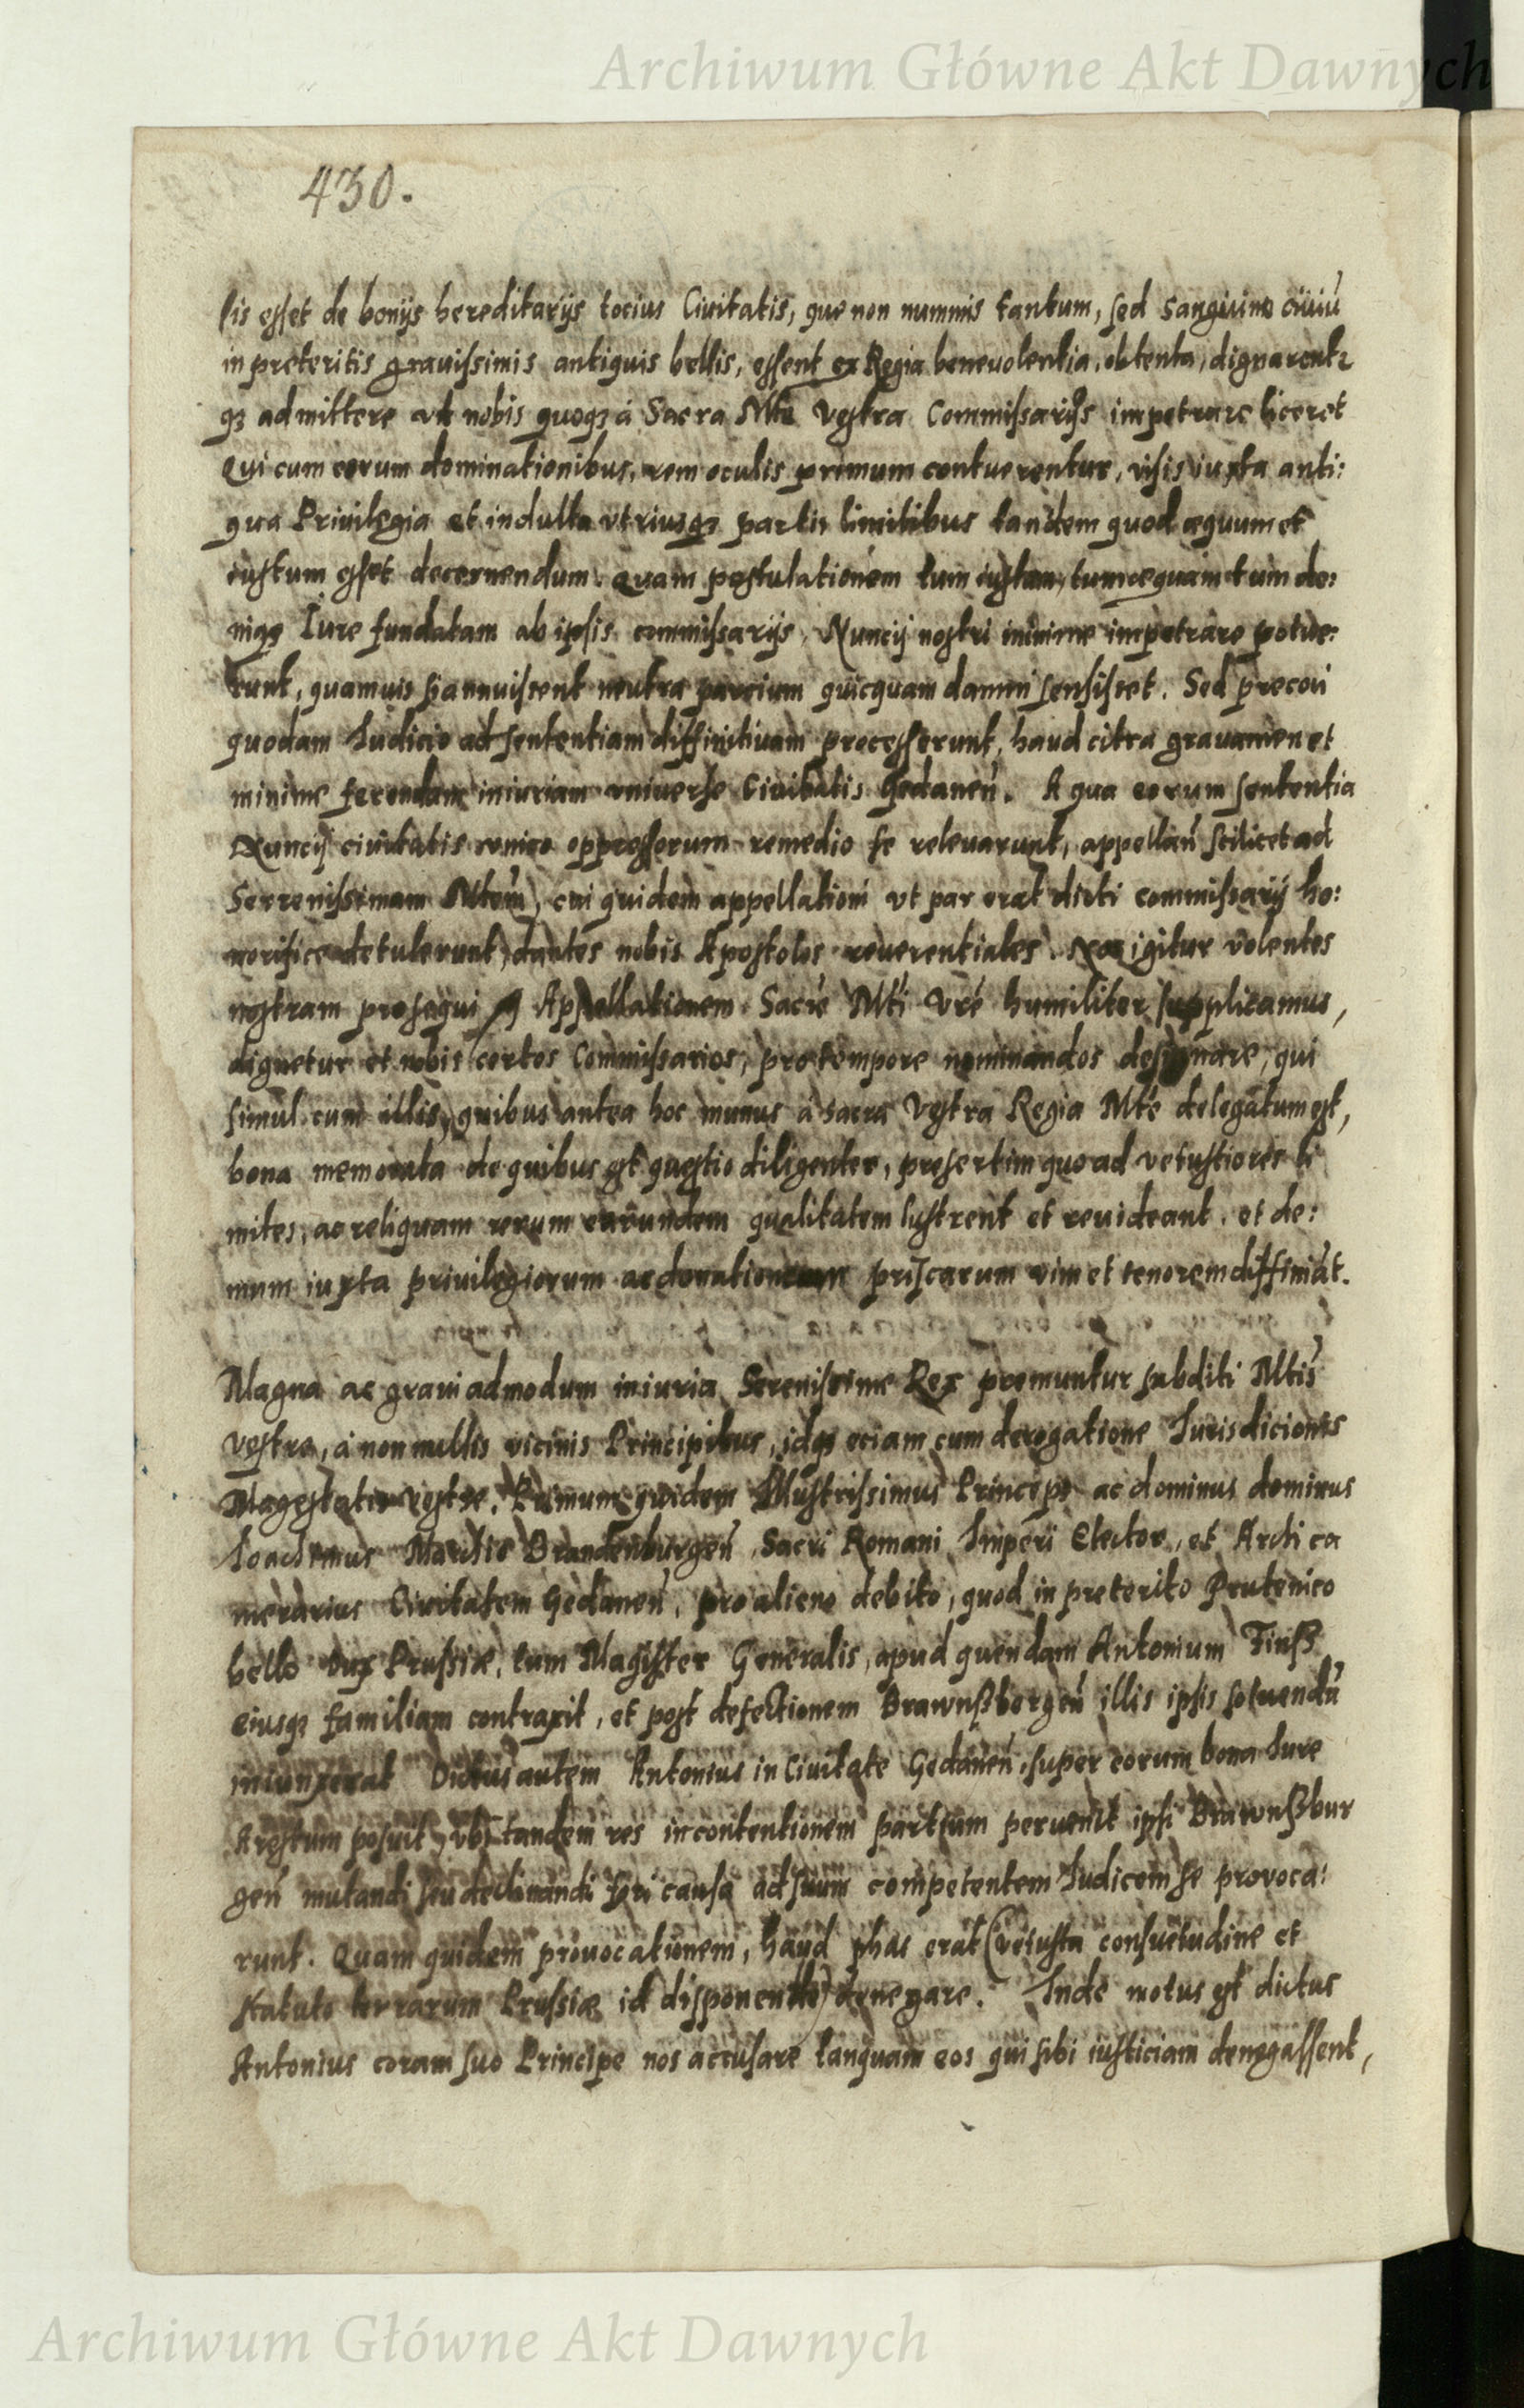 Archiwum Główne Akt Dawnych
430.
lis esset de bonijs hereditarijs tocius Civitatis, que non nummis tantum, sed sanguine civiū
in preteritis gravissimis antiquis bellis, essent ex Regia benevolentia, obtenta, dignarentr
qȝ admittere vt nobis quoqȝ á Sacra Mte Vestra Commissarijs impetrare liceret
Qui cum eorum dominationibus, rem oculis primum contuerentur, visis iuxta anti:
qua Privilegia et indulta vtriusqȝ partis limitibus tandem quod æquum et
iustum esset decernendum. Quam postulationem tum iustam, tum æquam tum de:
niqȝ Iure fundatam ab ipsis commissarijs, Nuncij nostri minime impetrare potue:
runt, quamuis si annuissent neutra parcium quicquam damni sensisset. Sed precoci
quodam Iudicio ad sententiam diffinitivam processerunt, haud citra gravamen et
minime ferendam iniuriam vniverse Civitatis Gedaneń. A qua eorum sententia
Nuncij civitatis vnico oppressorum remedio se relevarunt, appellań scilicet ad
Serrenissimam Mtem, cui quidem appellationi vt par erat dicti commissarij ho:
norifice detulerunt, dantes nobis Apostolos reverentiales. Nos igitur volentes
nostram prosequi Appellationem Sacre Mti Vre humiliter supplicamus,
dignetur et nobis certos Commissarios, pro tempore nominandos designare, qui
simul cum illis, quibus antea hoc munus á sacra Vestra Regia Mte delegatum est,
bona memorata de quibus est questio diligenter, presertim quo ad vetustiores li
mites, ac reliquam rerum earundem qualitatem lustrent et revideant, et de:
mum iuxta privilegiorum ac donationum priscarum vim et tenorem diffiniāt.
Magna ac gravi admodum iniuria Serenissime Rex premuntur subditi Mtis
Vestre, á nonnullis vicinis Principibus, idqȝ eciam cum derogatione Iurisdicionis
Magestatis vestre. Primum quidem Illustrissimus Princeps ac dominus dominus
Ioachimus Marchio Brandenburgeń, Sacri Romani Imperi Elector, et Archi ca
merarius Civitatem Gedaneń, pro alieno debito, quod in preterito Prutenico
bello Dux Prussiæ, tum Magister Generalis, apud quendam Antonium Finß
eiusqȝ familiam contraxit, et post defectionem Brawnßbergeń illis ipsis solvendū
iniunxerat Dictus autem Antonius in Civitate Gedaneń, super eorum bona Iure
Arestum posuit, vbi tandem res in contentionem partium pervenit ipsi Brawnßbur
geń mutandi seu declinandi fori causa ad suum competentem Iudicem se provoca:
runt. Quam quidem provocationem, haud phas erat (vetusta consuetudine et
statuto terrarum Prussiæ id disponente) denegare. Inde motus est dictus
Antonius coram suo Principe nos accusare tanquam eos qui sibi iusticiam denegassent,
Archiwum Główne Akt Dawnych